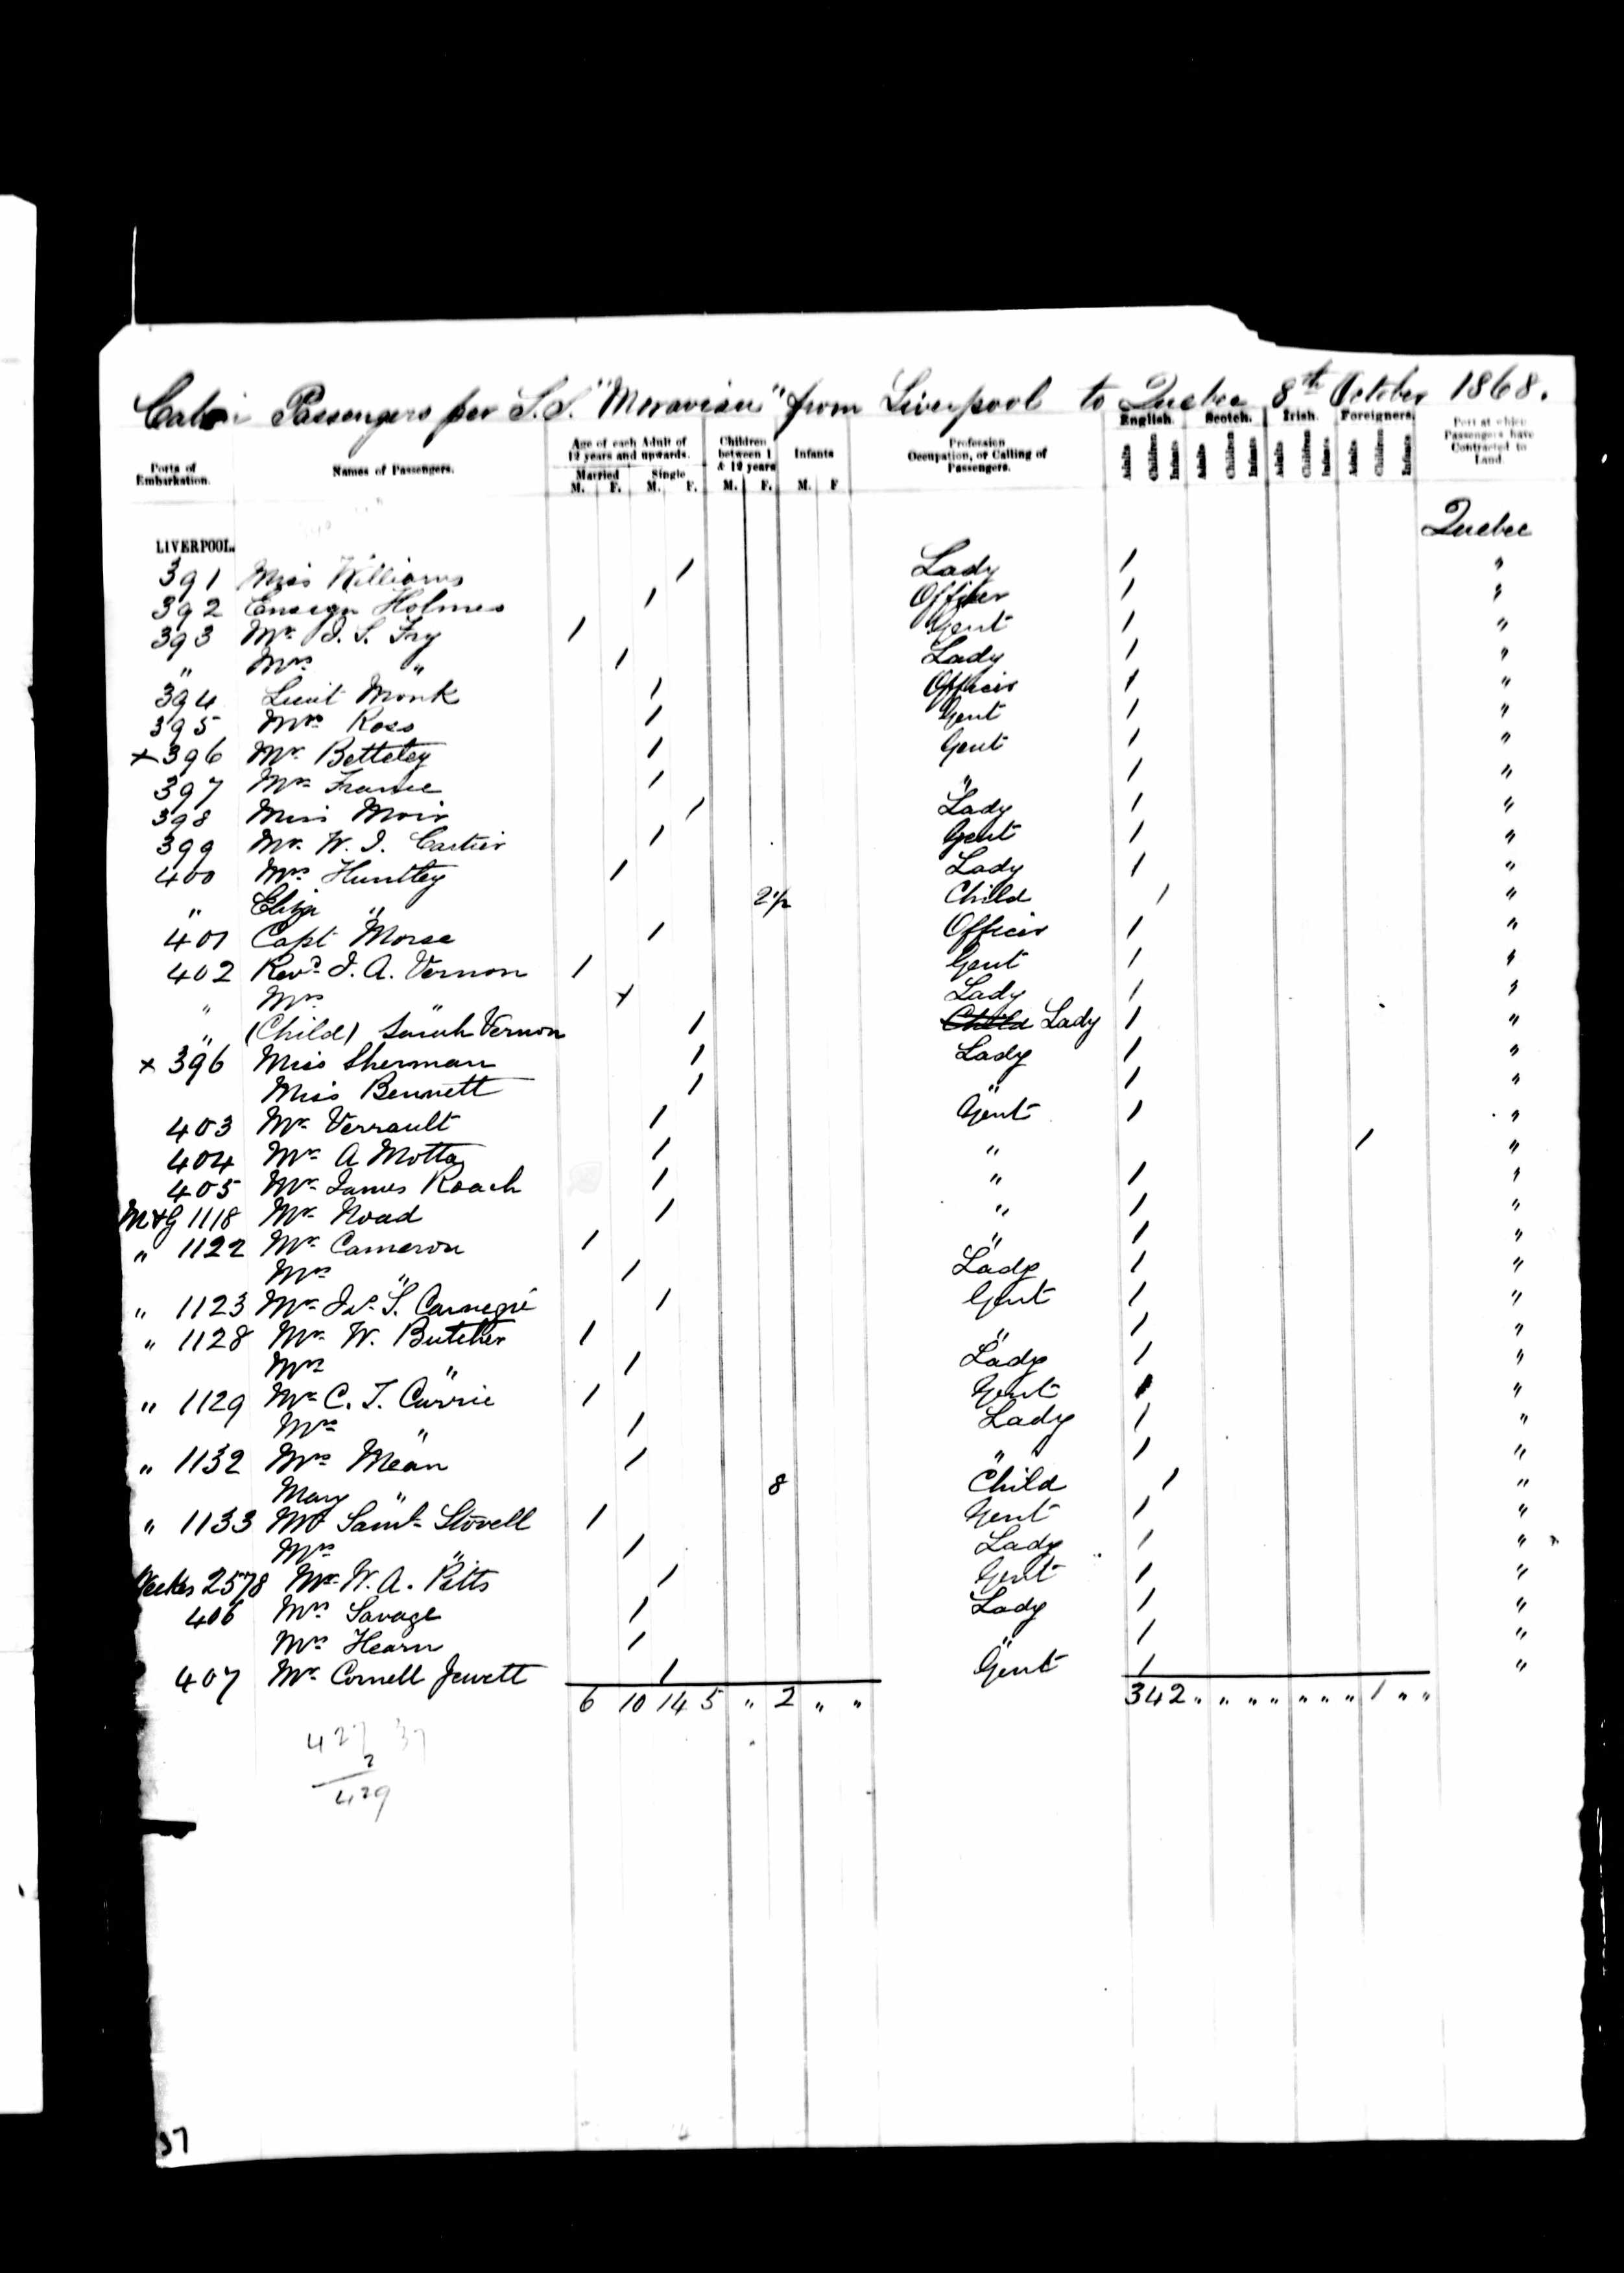 Cabin Passengers per S.S. "Moravian" from Liverpool to Quebec 8th October 1868.
Ports of Embarkation. Names of Passengers. Age of each Adult of 12 years and upwards. Married M. F. Single M. F. Children between 1 & 12 years M. F. Infants M. F Profession Occupation, or Calling of Passengers. English. Adults Children Infants Scotch. Adults Children Infants Irish. Adults Children Infants Foreigners. Adults Children Infants Port at which Passengers have Contracted to Land.
Quebec
LIVERPOOL.
391 Miss Williams / Lady / "
392 Ensign Holmes / Officer / "
393 Mr. J. S. Fry / Gent / "
" Mrs " / Lady / "
394 Lieut Monk / Officer / "
395 Mr. Ross / Gent / "
x 396 Mr. Betteley / Gent / "
397 Mr. France / " / "
398 Miss Moir / Lady / "
399 Mr. W. J. Cartier / Gent / "
400 Mrs Huntley / Lady / "
" Eliza " 2 1/2 Child / "
401 Capt Morse / Officer / "
402 Revd. J. A. Vernon / Gent / "
" Mrs x Lady / "
" (Child) Sarah Vernon / Child Lady / "
x 396 Miss Sherman / Lady / "
Miss Bennett / " / "
403 Mr. Verrault / Gent / "
404 Mr. A Motta / " / "
405 Mr. James Roach / " / "
M&G 1118 Mr. Noad / " / "
" 1122 Mr. Cameron / " / "
Mrs " / Lady / "
" 1123 Mr. Jas. S. Carnegie / Gent / "
" 1128 Mr. W. Butcher / " / "
Mrs " / Lady / "
" 1129 Mr. C. J. Currie / Gent / "
Mrs " / Lady / "
" 1132 Mrs Mean / " / "
Mary " 8 Child / "
" 1133 Mr Saml. Stovell / Gent / "
Mrs " / Lady / "
2578 Mr. W. A. Pitts / Gent / "
406 Mrs Savage / Lady / "
Mrs Hearn / " / "
407 Mr. Cornell Jewett / Gent / "
6 10 14 5 " 2 " " 34 2 " " " " " " " 1 " "
427 37
2
429
37